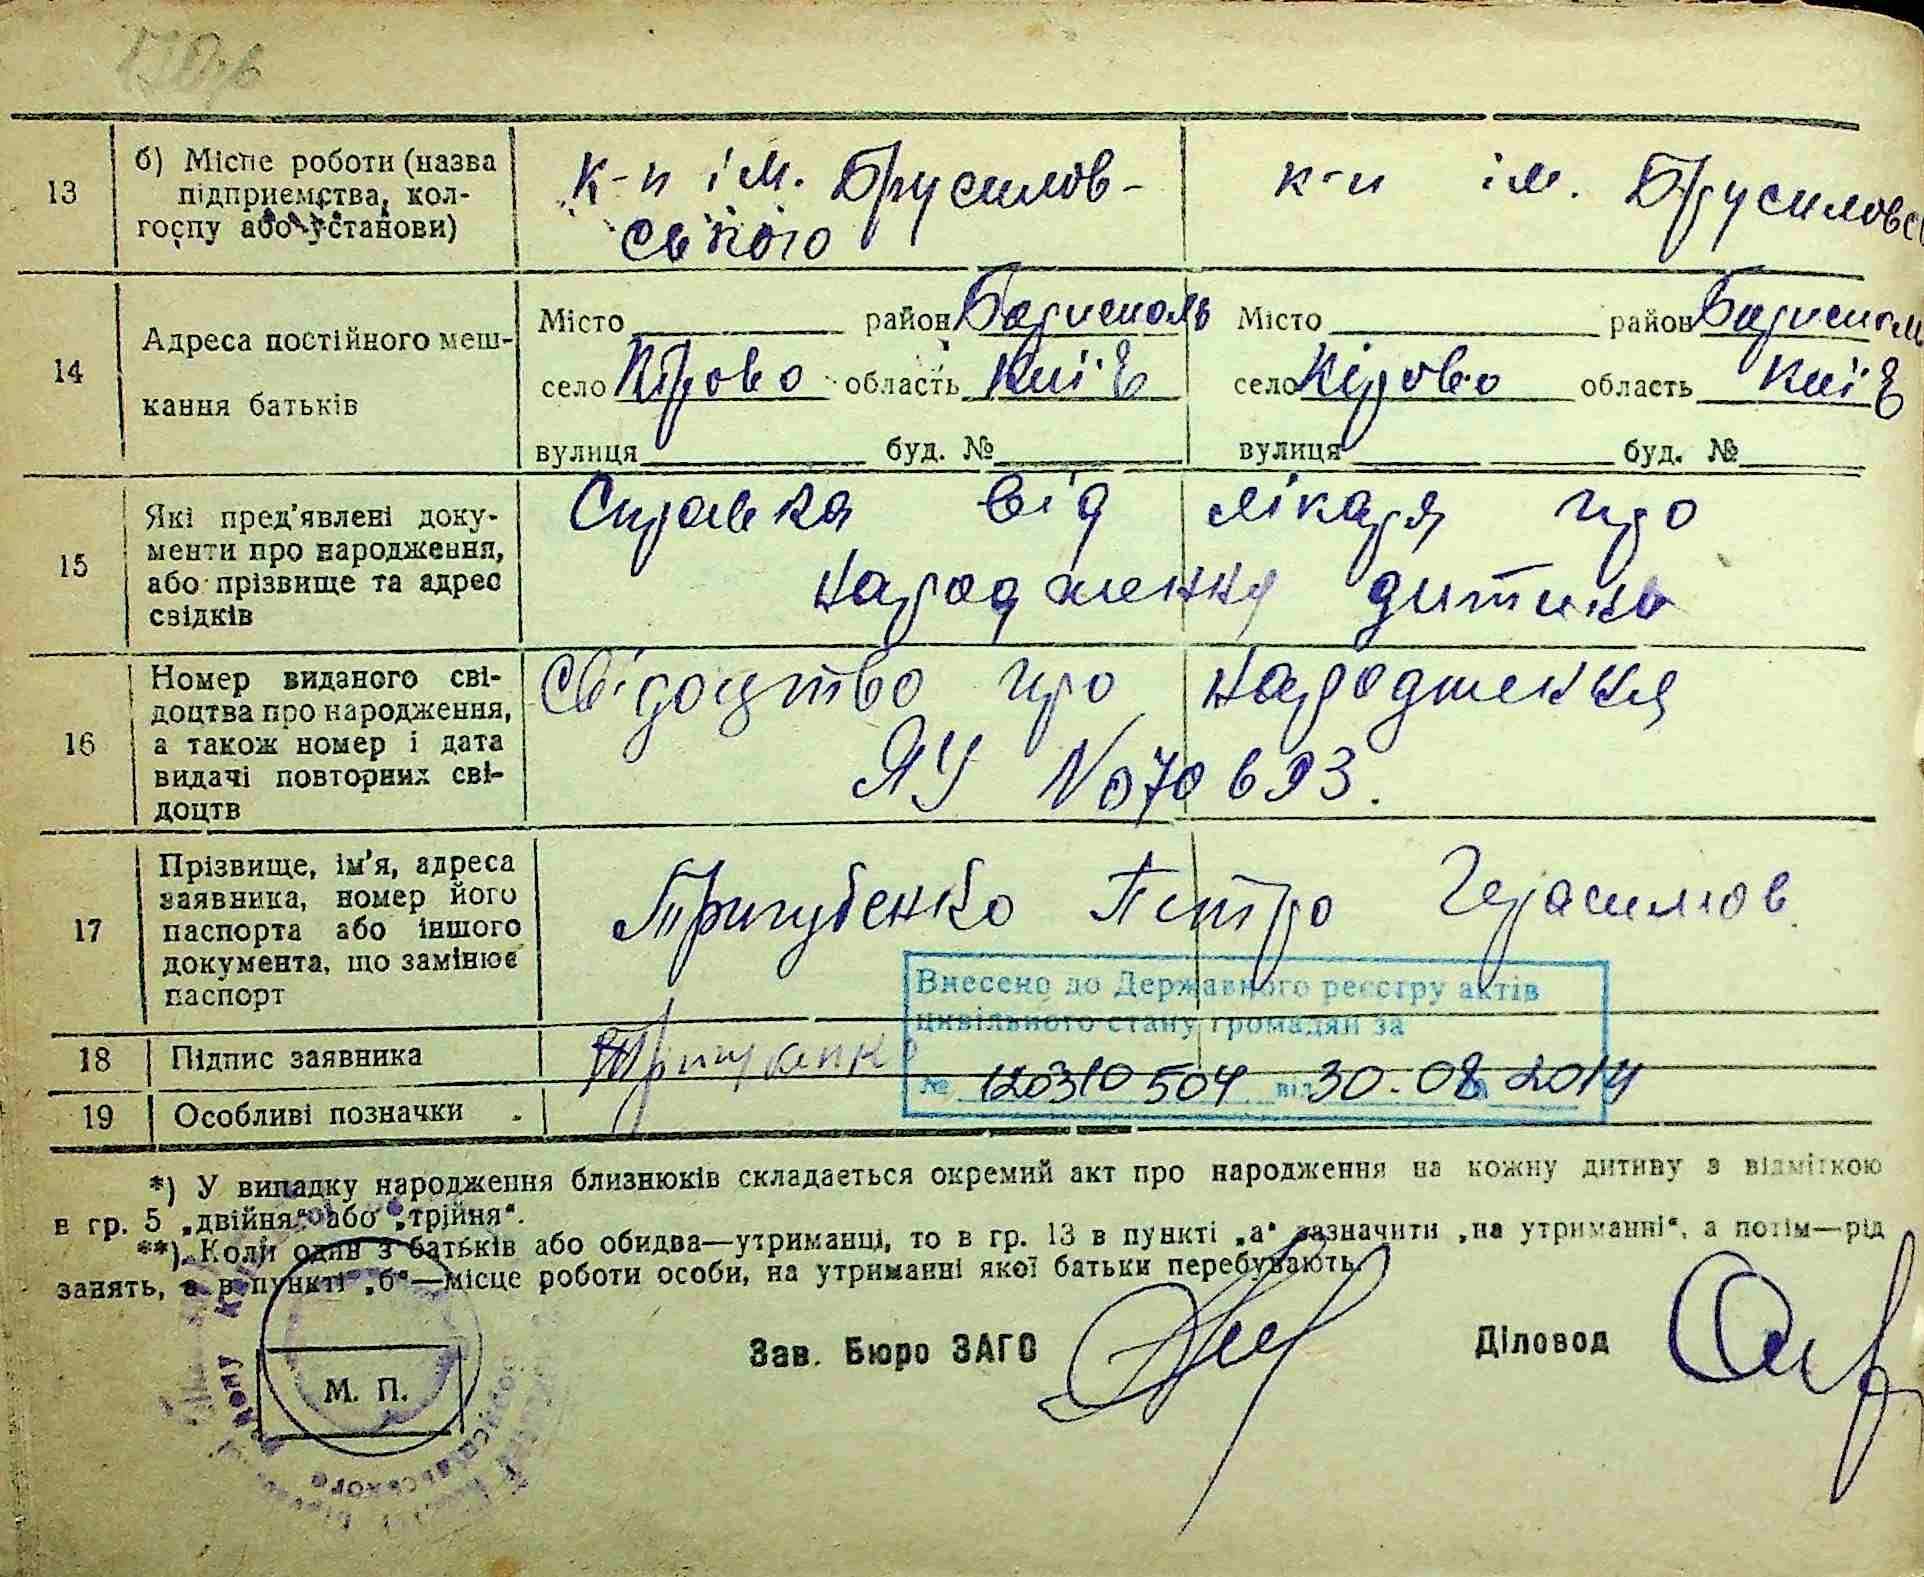 13
б) Місце роботи (назва
підприємства, кол-
госпу або установи)
к-п ім. Брусилов-
ського
к-п ім. Брусиловс
14
Адреса постійного меш-
кання батьків
Місто район Бориспіль
село Кірово область Київ
вулиця буд. №
Місто район Бориспіл
село Кірово область Київ
вулиця буд. №
15
Які пред'явлені доку-
менти про народження,
або прізвище та адрес
свідків
Справка від лікаря про
народження дитини
16
Номер виданого сві-
доцтва про народження,
а також номер і дата
видачі повторних сві-
доцтв
Свідоцтво про народження
ЯУ №070693.
17
Прізвище, ім'я, адреса
заявника, номер його
паспорта або іншого
документа, що замінює
паспорт
Тригубенко Петро Герасимов.
Внесено до Державного реєстру актів
цивільного стану громадян за
№ 120310504 від 30.08 2014
18
Підпис заявника
19
Особливі позначки
*) У випадку народження близнюків складається окремий акт про народження на кожну дитину з відміткою
в гр. 5 „двійня“ або „трійня“.
**) Коли один з батьків або обидва—утриманці, то в гр. 13 в пункті „а“ зазначити „на утриманні“, а потім—рід
занять, а в пункті „б“—місце роботи особи, на утриманні якої батьки перебувають.
М. П.
Зав. Бюро ЗАГС
Діловод